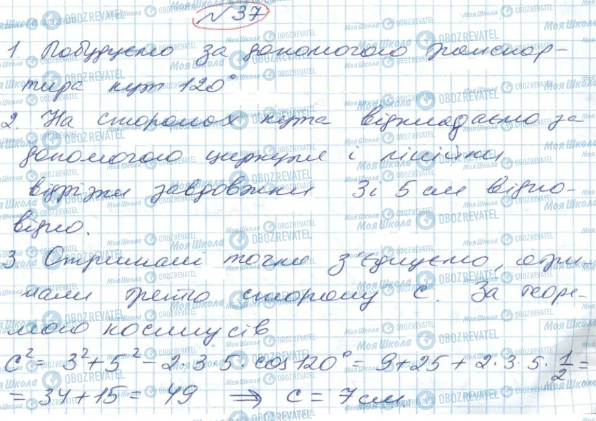 № 37
1. Побудуємо за допомогою транспор-
тира кут 120°
2. На сторонах кута відкладаємо за
допомогою циркуля і лінійки
відрізки завдовжки 3 і 5 см відпо-
відно.
3. Отримані точки з'єднуємо, отри-
мали третю сторону c. За теоре-
мою косинусів
c² = 3² + 5² - 2·3·5·cos 120° = 9 + 25 + 2·3·5·1/2 =
= 34 + 15 = 49 ⇒ c = 7 см.